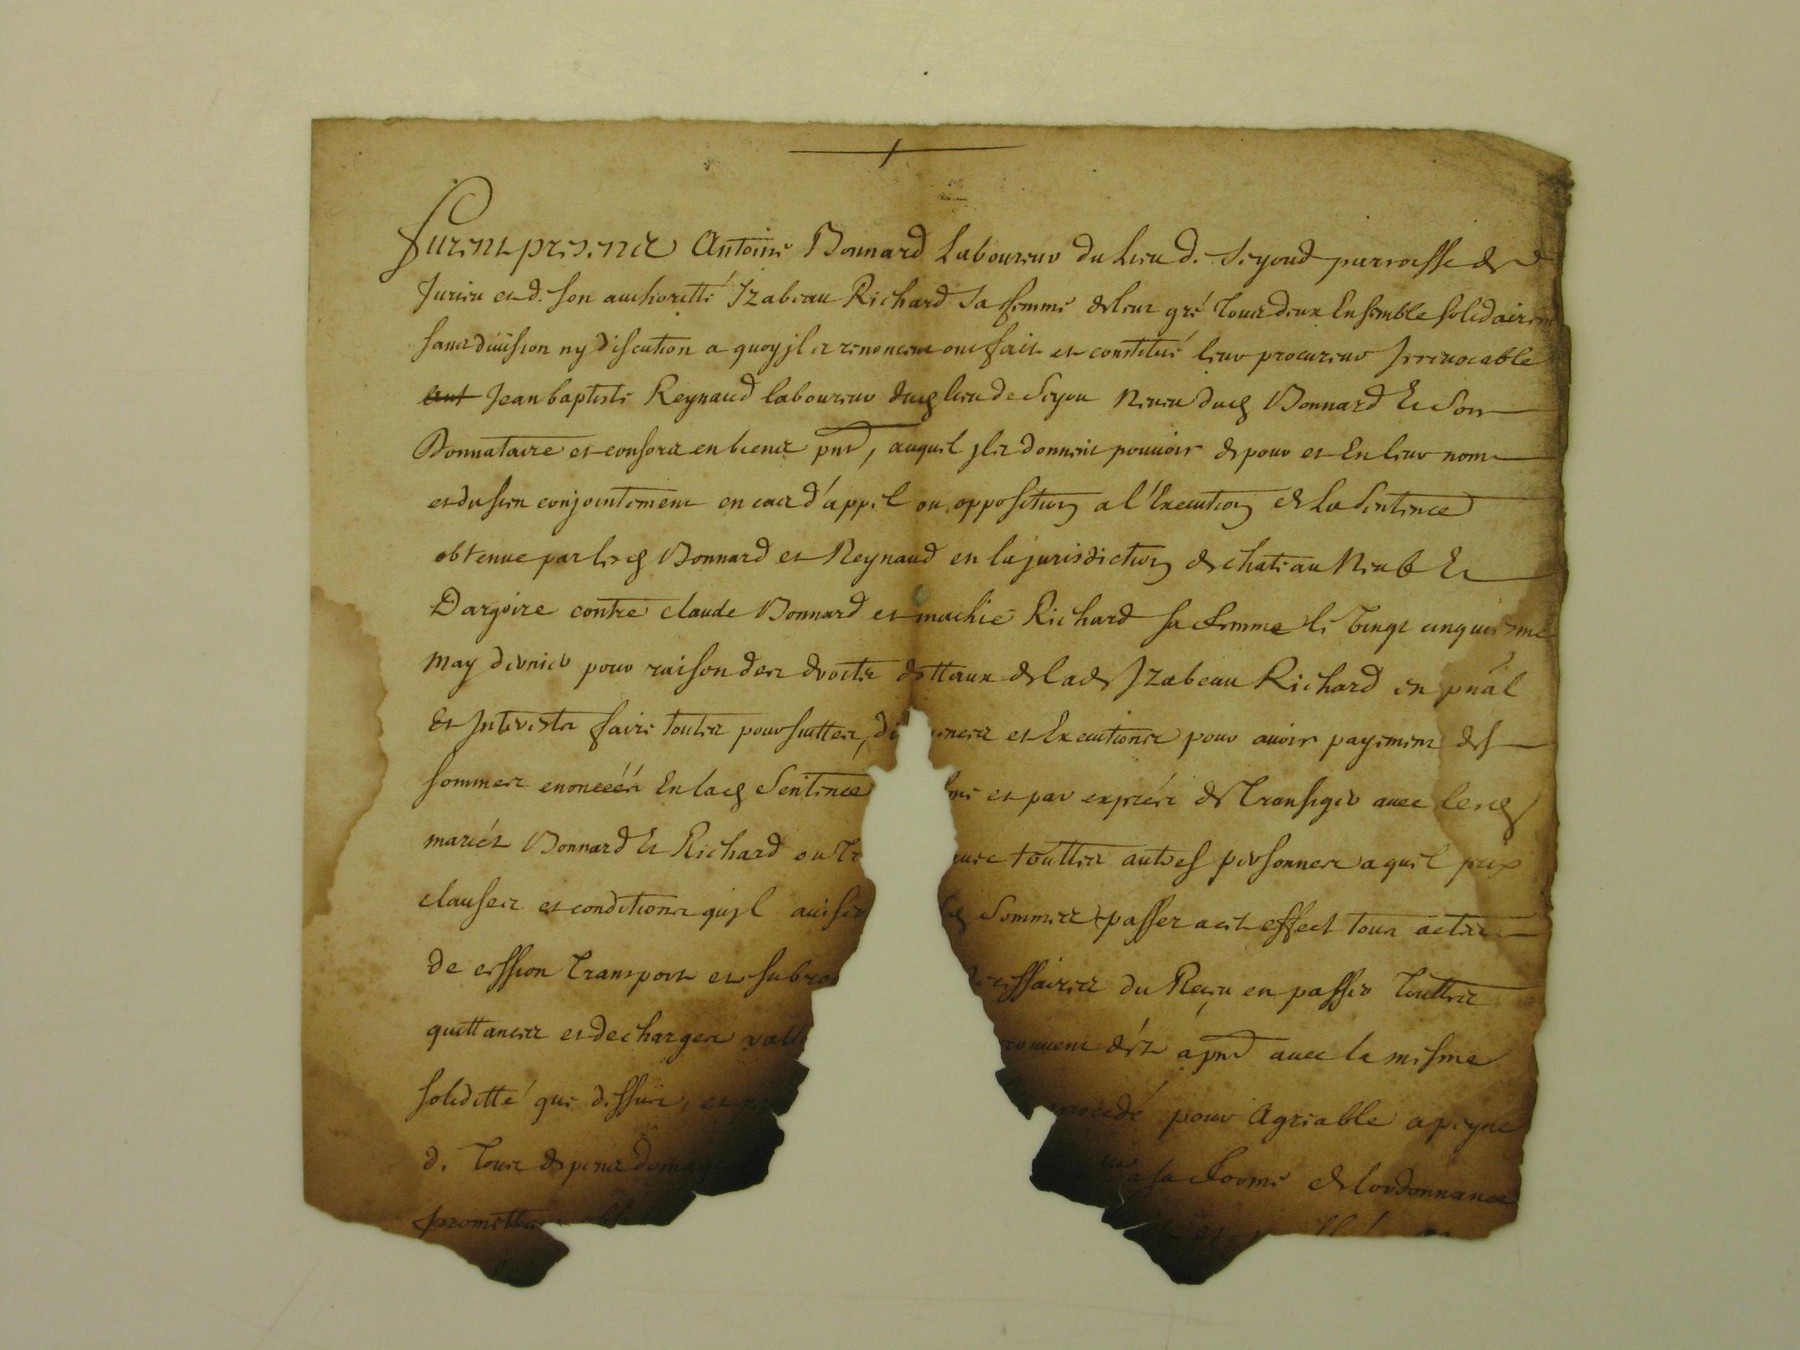 Furent presents Antoine Bonnard Laboureur du Lieu de Seyoud parroisse de
Jurieu et de son authoritté Izabeau Richard sa femme de leur gré tous deux Ensemble solidairem
sans division ny discution a quoy jls renoncent ont fait et constitué leur procureur Irrevocable
Jean baptiste Reynaud laboureur dud lieu de Seyou Neveu dud Bonnard Et son
Donnataire et consors en biens pnt, auquel jls donnent pouvoir de pour et En leur nom
et du sien conjointement en cas d'appel ou opposition a l'Execution de La Sentence
obtenue par lesd Bonnard et Reynaud en la jurisdiction de chateau Neuf Et
Dargoire contre claude Bonnard et Richard sa femme le vingt cinquiesme
May dernier pour raison des droits dottaux de lade Izabeau Richard en pnal
Et Interests faire toutes poursuittes, et Executions pour avoir payement des
sommes enoncéés En lad Sentence et par exprés de Transiger avec lesd
mariés Bonnard Et Richard ou touttes autres personnes a quel prix
clauses et conditions qujl Sommes passer a cet effect tous actes
de cession Transport et du Reçeu en passer Touttes
quittances et decharges d'és a pnt avec la mesme
soliditté que dessus, et pour Agreable a peyne
de Tous despens a la forme de lordonnance